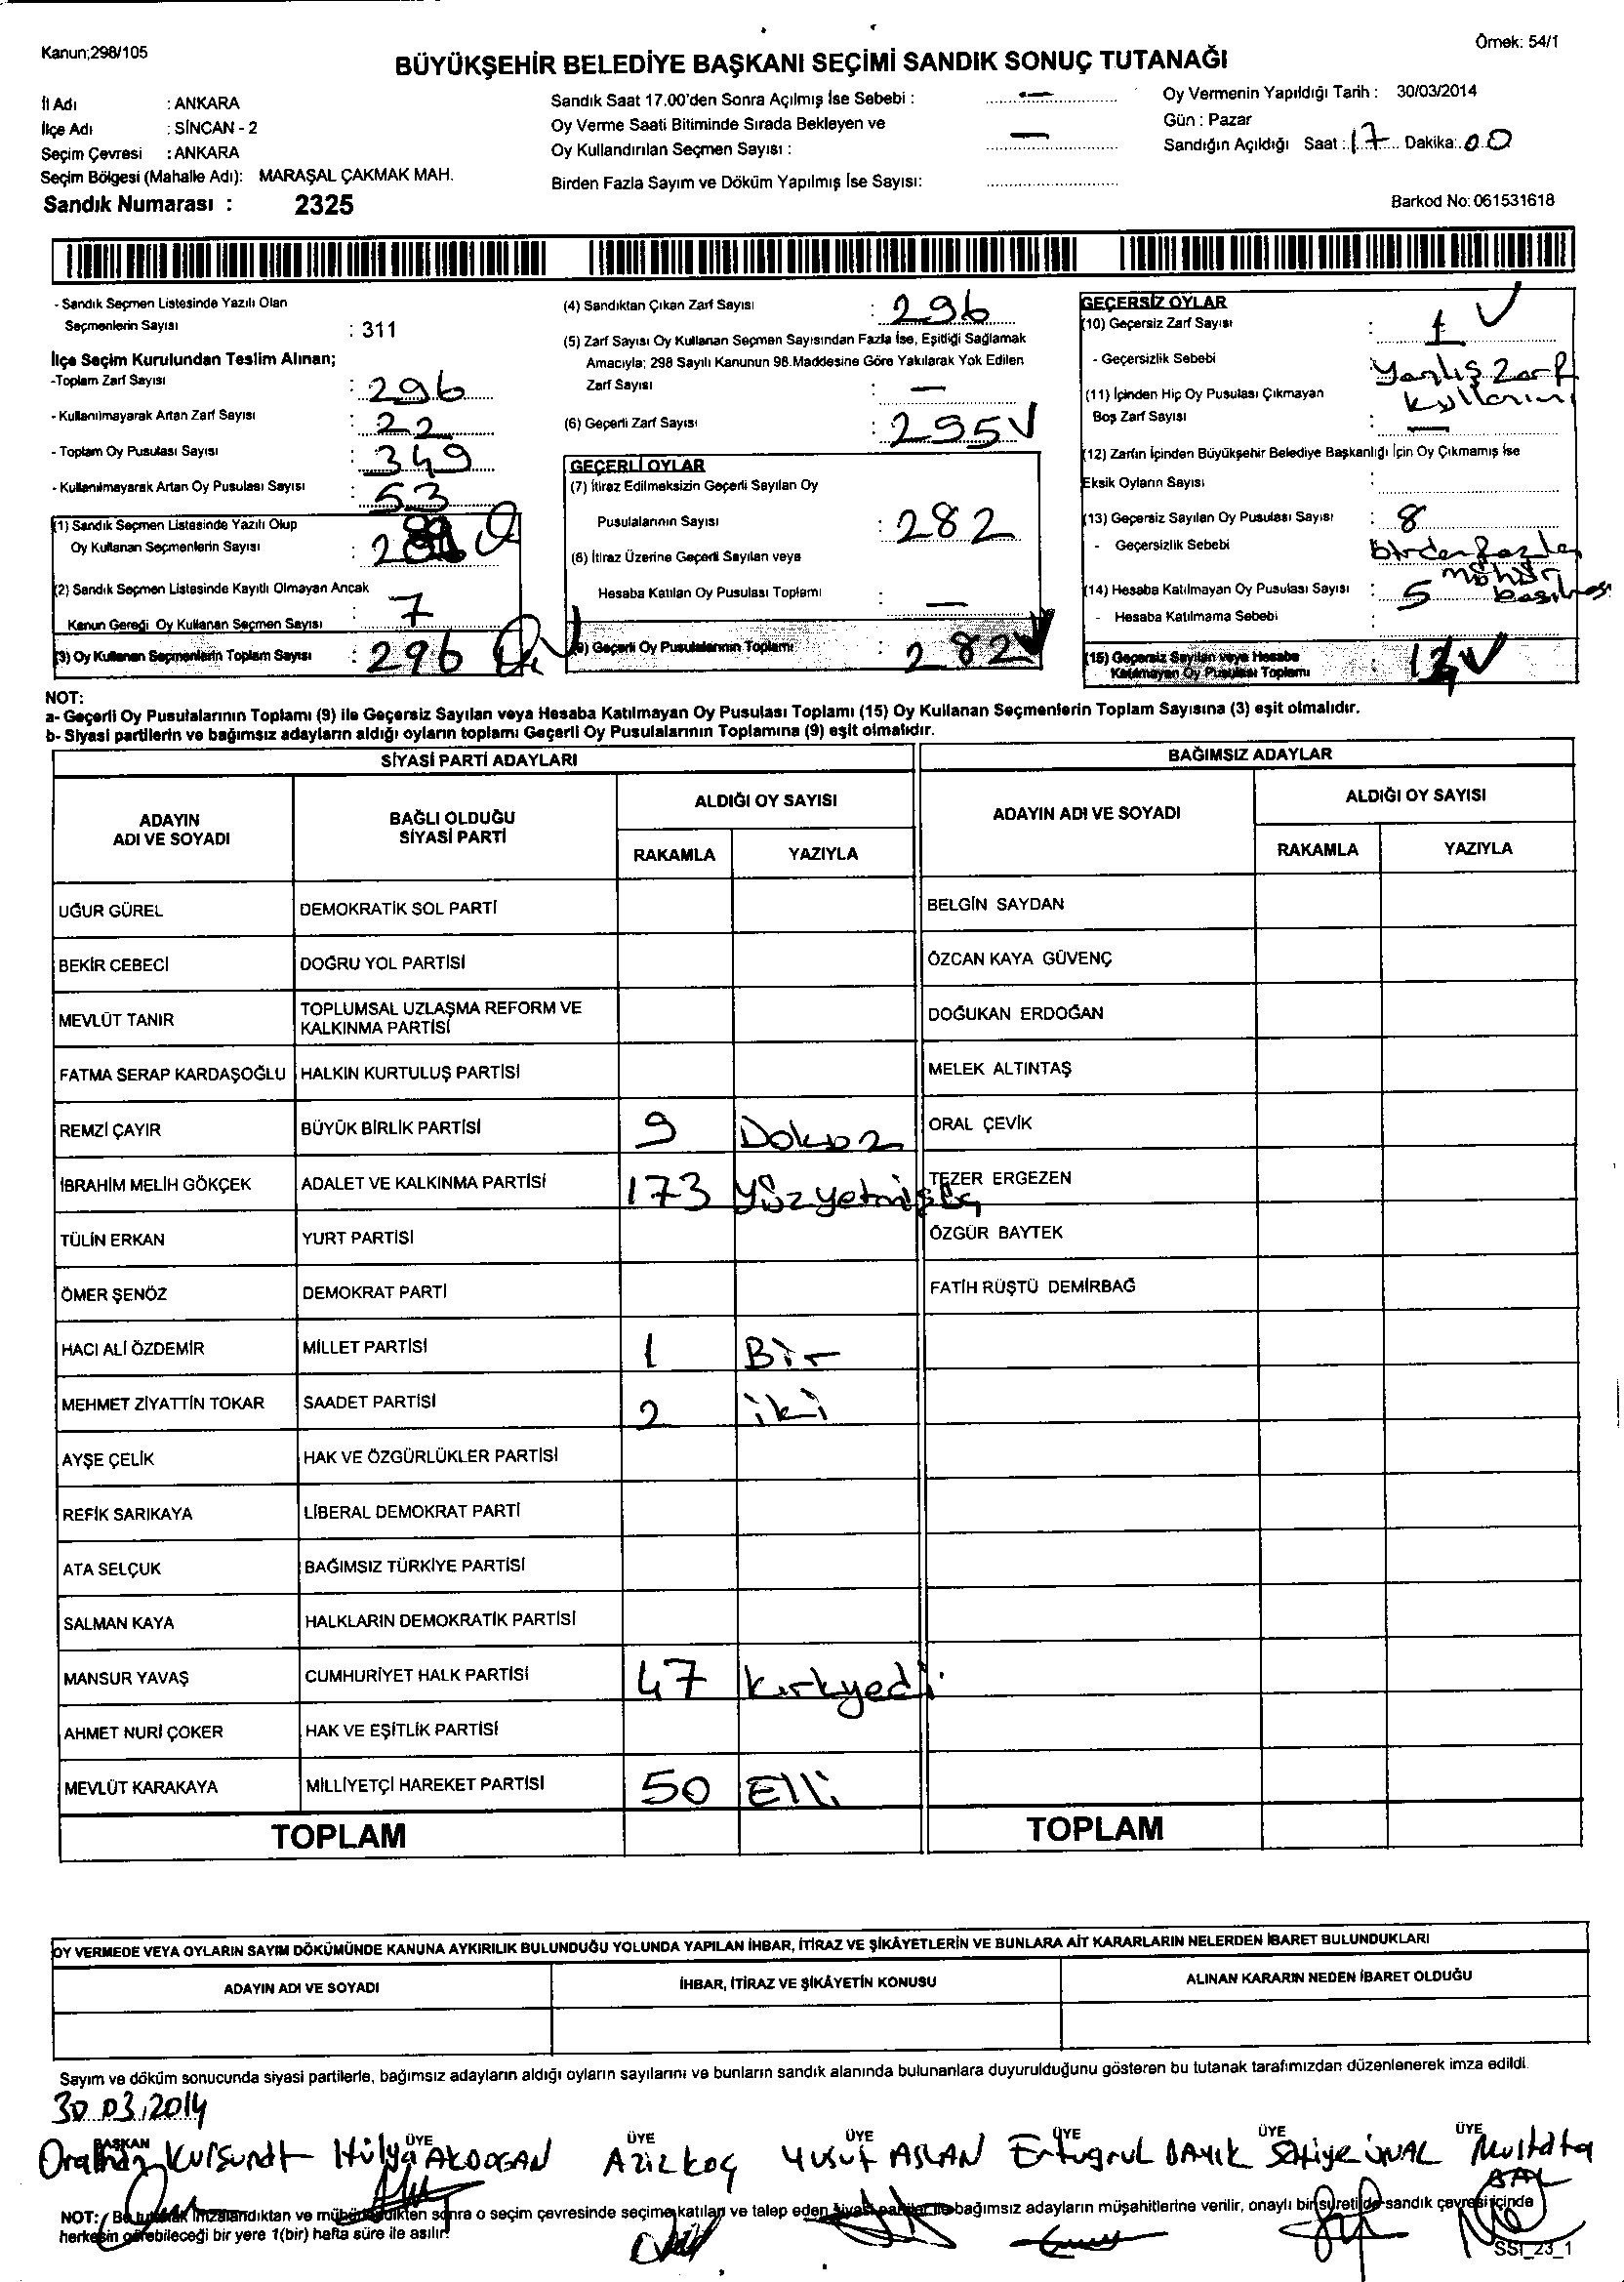 Kanun;298/105
Örnek: 54/1
BÜYÜKŞEHİR BELEDİYE BAŞKANI SEÇİMİ SANDIK SONUÇ TUTANAĞI
İl Adı : ANKARA
İlçe Adı : SİNCAN - 2
Seçim Çevresi : ANKARA
Seçim Bölgesi (Mahalle Adı): MARAŞAL ÇAKMAK MAH.
Sandık Numarası : 2325
Sandık Saat 17.00'den Sonra Açılmış İse Sebebi : —
Oy Verme Saati Bitiminde Sırada Bekleyen ve
Oy Kullandırılan Seçmen Sayısı : —
Birden Fazla Sayım ve Döküm Yapılmış İse Sayısı:
Oy Vermenin Yapıldığı Tarih : 30/03/2014
Gün : Pazar
Sandığın Açıldığı Saat : 17 Dakika: 00
Barkod No: 061531618
- Sandık Seçmen Listesinde Yazılı Olan
Seçmenlerin Sayısı : 311
İlçe Seçim Kurulundan Teslim Alınan;
-Toplam Zarf Sayısı : 296
- Kullanılmayarak Artan Zarf Sayısı : 22
- Toplam Oy Pusulası Sayısı : 349
- Kullanılmayarak Artan Oy Pusulası Sayısı : 53
(1) Sandık Seçmen Listesinde Yazılı Olup
Oy Kullanan Seçmenlerin Sayısı :
(2) Sandık Seçmen Listesinde Kayıtlı Olmayan Ancak
Kanun Gereği Oy Kullanan Seçmen Sayısı : 7
(3) Oy Kullanan Seçmenlerin Toplam Sayısı : 296
(4) Sandıktan Çıkan Zarf Sayısı : 296
(5) Zarf Sayısı Oy Kullanan Seçmen Sayısından Fazla İse, Eşitliği Sağlamak
Amacıyla; 298 Sayılı Kanunun 98.Maddesine Göre Yakılarak Yok Edilen
Zarf Sayısı : —
(6) Geçerli Zarf Sayısı : 295
GEÇERLİ OYLAR
(7) İtiraz Edilmeksizin Geçerli Sayılan Oy
Pusulalarının Sayısı : 282
(8) İtiraz Üzerine Geçerli Sayılan veya
Hesaba Katılan Oy Pusulası Toplamı : —
(9) Geçerli Oy Pusulalarının Toplamı : 282
GEÇERSİZ OYLAR
(10) Geçersiz Zarf Sayısı : 1
- Geçersizlik Sebebi Yanlış Zarf
kullanımı
(11) İçinden Hiç Oy Pusulası Çıkmayan
Boş Zarf Sayısı : —
(12) Zarfın İçinden Büyükşehir Belediye Başkanlığı İçin Oy Çıkmamış İse
Eksik Oyların Sayısı :
(13) Geçersiz Sayılan Oy Pusulası Sayısı : 8
- Geçersizlik Sebebi birden fazla
mühür
basılması
(14) Hesaba Katılmayan Oy Pusulası Sayısı : 5
- Hesaba Katılmama Sebebi :
(15) Geçersiz Sayılan veya Hesaba
Katılmayan Oy Pusulası Toplamı :
NOT:
a- Geçerli Oy Pusulalarının Toplamı (9) ile Geçersiz Sayılan veya Hesaba Katılmayan Oy Pusulası Toplamı (15) Oy Kullanan Seçmenlerin Toplam Sayısına (3) eşit olmalıdır.
b- Siyasi partilerin ve bağımsız adayların aldığı oyların toplamı Geçerli Oy Pusulalarının Toplamına (9) eşit olmalıdır.
SİYASİ PARTİ ADAYLARI
BAĞIMSIZ ADAYLAR
ADAYIN ADI VE SOYADI
BAĞLI OLDUĞU SİYASİ PARTİ
ALDIĞI OY SAYISI
RAKAMLA YAZIYLA
ADAYIN ADI VE SOYADI
ALDIĞI OY SAYISI
RAKAMLA YAZIYLA
UĞUR GÜREL DEMOKRATİK SOL PARTİ BELGİN SAYDAN
BEKİR CEBECİ DOĞRU YOL PARTİSİ ÖZCAN KAYA GÜVENÇ
MEVLÜT TANIR TOPLUMSAL UZLAŞMA REFORM VE KALKINMA PARTİSİ DOĞUKAN ERDOĞAN
FATMA SERAP KARDAŞOĞLU HALKIN KURTULUŞ PARTİSİ MELEK ALTINTAŞ
REMZİ ÇAYIR BÜYÜK BİRLİK PARTİSİ 9 Dokuz ORAL ÇEVİK
İBRAHİM MELİH GÖKÇEK ADALET VE KALKINMA PARTİSİ 173 Yüzyetmişüç TEZER ERGEZEN
TÜLİN ERKAN YURT PARTİSİ ÖZGÜR BAYTEK
ÖMER ŞENÖZ DEMOKRAT PARTİ FATİH RÜŞTÜ DEMİRBAĞ
HACI ALİ ÖZDEMİR MİLLET PARTİSİ 1 Bir
MEHMET ZİYATTİN TOKAR SAADET PARTİSİ 2 iki
AYŞE ÇELİK HAK VE ÖZGÜRLÜKLER PARTİSİ
REFİK SARIKAYA LİBERAL DEMOKRAT PARTİ
ATA SELÇUK BAĞIMSIZ TÜRKİYE PARTİSİ
SALMAN KAYA HALKLARIN DEMOKRATİK PARTİSİ
MANSUR YAVAŞ CUMHURİYET HALK PARTİSİ 47 Kırkyedi
AHMET NURİ ÇOKER HAK VE EŞİTLİK PARTİSİ
MEVLÜT KARAKAYA MİLLİYETÇİ HAREKET PARTİSİ 50 Elli
TOPLAM TOPLAM
OY VERMEDE VEYA OYLARIN SAYIM DÖKÜMÜNDE KANUNA AYKIRILIK BULUNDUĞU YOLUNDA YAPILAN İHBAR, İTİRAZ VE ŞİKÂYETLERİN VE BUNLARA AİT KARARLARIN NELERDEN İBARET BULUNDUKLARI
ADAYIN ADI VE SOYADI İHBAR, İTİRAZ VE ŞİKÂYETİN KONUSU ALINAN KARARIN NEDEN İBARET OLDUĞU
Sayım ve döküm sonucunda siyasi partilerle, bağımsız adayların aldığı oyların sayılarını ve bunların sandık alanında bulunanlara duyurulduğunu gösteren bu tutanak tarafımızdan düzenlenerek imza edildi.
30.03.2014
BAŞKAN ÜYE ÜYE ÜYE ÜYE ÜYE ÜYE
Hülya AKDOĞAN Aziz Koç Yusuf ASLAN Ertuğrul ÜNAL Mustafa
NOT: Bu tutanak imzalandıktan ve mühürlendikten sonra o seçim çevresinde seçime katılan ve talep eden siyasi partiler ile bağımsız adayların müşahitlerine verilir, onaylı bir sureti de sandık çevresi içinde
herkesin görebileceği bir yere 1(bir) hafta süre ile asılır.
SSI_23_1